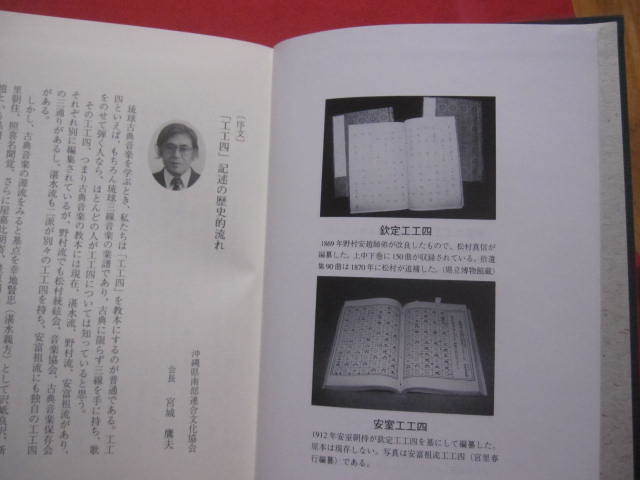 [序文]
「工工四」記述の歴史的流れ
沖縄県南部連合文化協会
会長 宮城 鷹夫
琉球古典音楽を学ぶとき、私たちは「工工四」を教本にするのが普通である。工工
四といえば、もちろん琉球三線音楽の楽譜であり、古典に限らず三線を手に持ち、歌
をのせて弾く人なら、ほとんどの人が工工四については知っていると思う。
その工工四、つまり古典音楽の教本には現在、湛水流、野村流、安冨祖流があり、
それぞれ別に編集されているが、野村流でも松村統絃会、音楽協会、古典音楽保存会
の三通りがあるし、湛水流も二派が別々の工工四を持ち、安冨祖流にも独自の工工四
がある。
しかし、古典音楽の源流をみると始古を幸地賢忠（湛水親方）として
里朝住、照喜名聞覚、さらに屋嘉比朝寄、
欽定工工四
1869年野村安趙師弟が改良したもので、松村真信が
編纂した。上中下巻に150曲が収録されている。拾遺
集90曲は1870年に松村が追補した。（県立博物館蔵）
安室工工四
1912年安室朝持が欽定工工四を基にして編纂した。
原本は現存しない。写真は安冨祖流工工四（宮里春
行編纂）である。